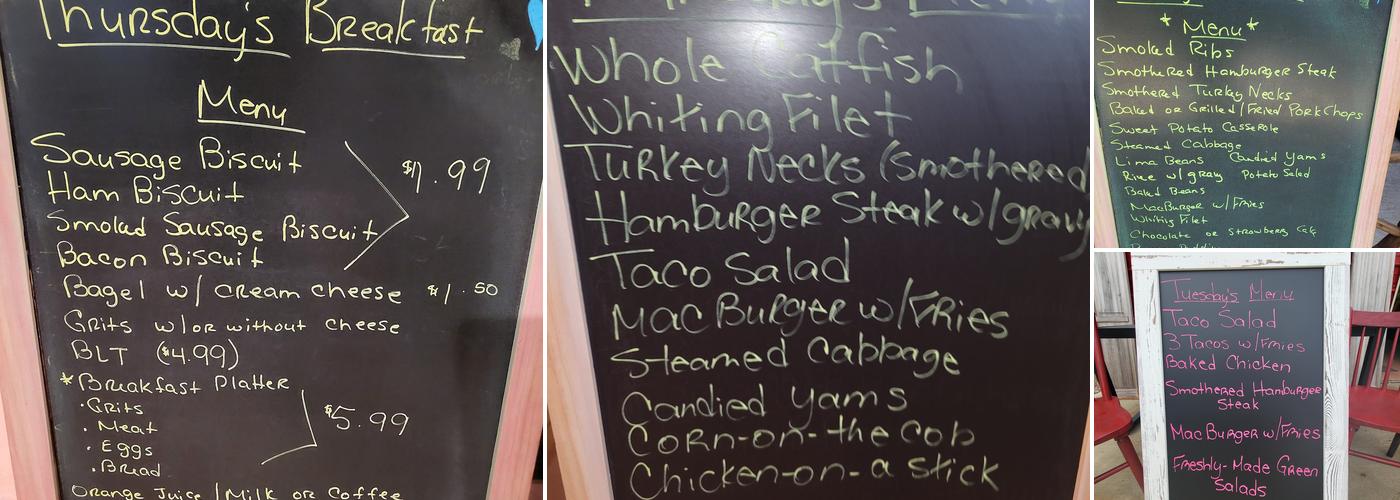 Thursday's Breakfast
Menu
Sausage Biscuit
Ham Biscuit
Smoked Sausage Biscuit
Bacon Biscuit
$1.99
Bagel w/ cream cheese $1.50
Grits w/or without cheese
BLT ($4.99)
*Breakfast Platter
·Grits
·Meat
·Eggs
·Bread
$5.99
Orange Juice/Milk or Coffee
Whole Catfish
Whiting Filet
Turkey Necks (Smothered)
Hamburger Steak w/gravy
Taco Salad
Mac Burger w/Fries
Steamed Cabbage
Candied Yams
Corn-on-the cob
Chicken-on-a stick
* Menu *
Smoked Ribs
Smothered Hamburger Steak
Smothered Turkey Necks
Baked or Grilled/Fried Pork Chops
Sweet Potato Casserole
Steamed Cabbage
Lima Beans Candied Yams
Rice w/ gravy Potato Salad
Baked Beans
MacBurger w/Fries
Whiting Filet
Chocolate or Strawberry Cake
Tuesday's Menu
Taco Salad
3 Tacos w/Fries
Baked Chicken
Smothered Hamburger
Steak
Mac Burger w/Fries
Freshly-Made Green
Salads